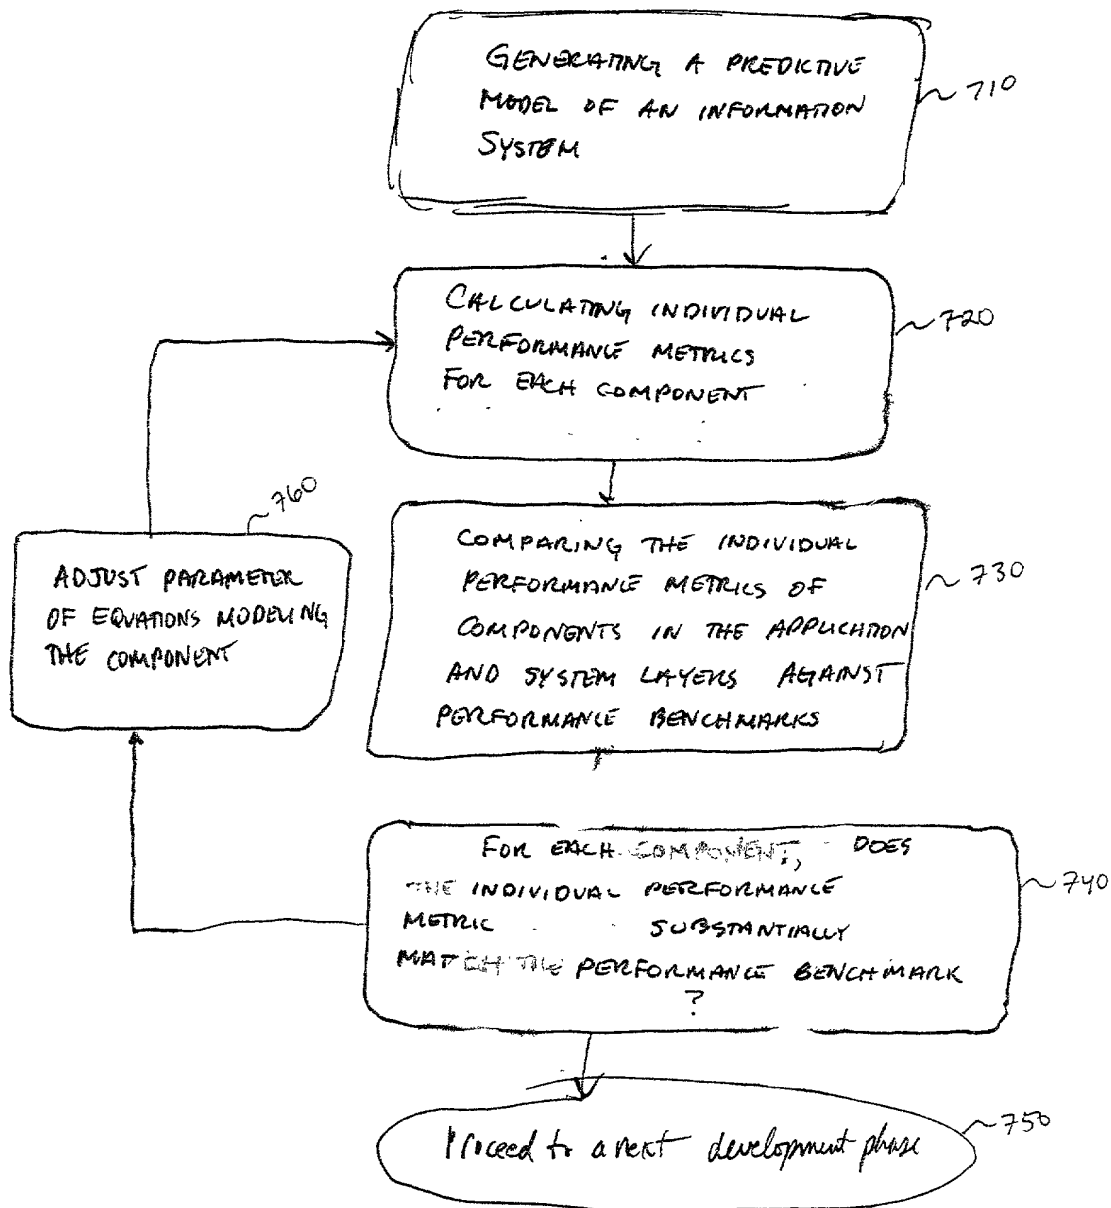 GENERATING A PREDICTIVE
MODEL OF AN INFORMATION
SYSTEM
710
CALCULATING INDIVIDUAL
PERFORMANCE METRICS
FOR EACH COMPONENT
720
760
ADJUST PARAMETER
OF EQUATIONS MODELING
THE COMPONENT
COMPARING THE INDIVIDUAL
PERFORMANCE METRICS OF
COMPONENTS IN THE APPLICATION
AND SYSTEM LAYERS AGAINST
PERFORMANCE BENCHMARKS
730
FOR EACH COMPONENT, DOES
THE INDIVIDUAL PERFORMANCE
METRIC SUBSTANTIALLY
MATCH THE PERFORMANCE BENCHMARK
?
740
Proceed to a next development phase
750